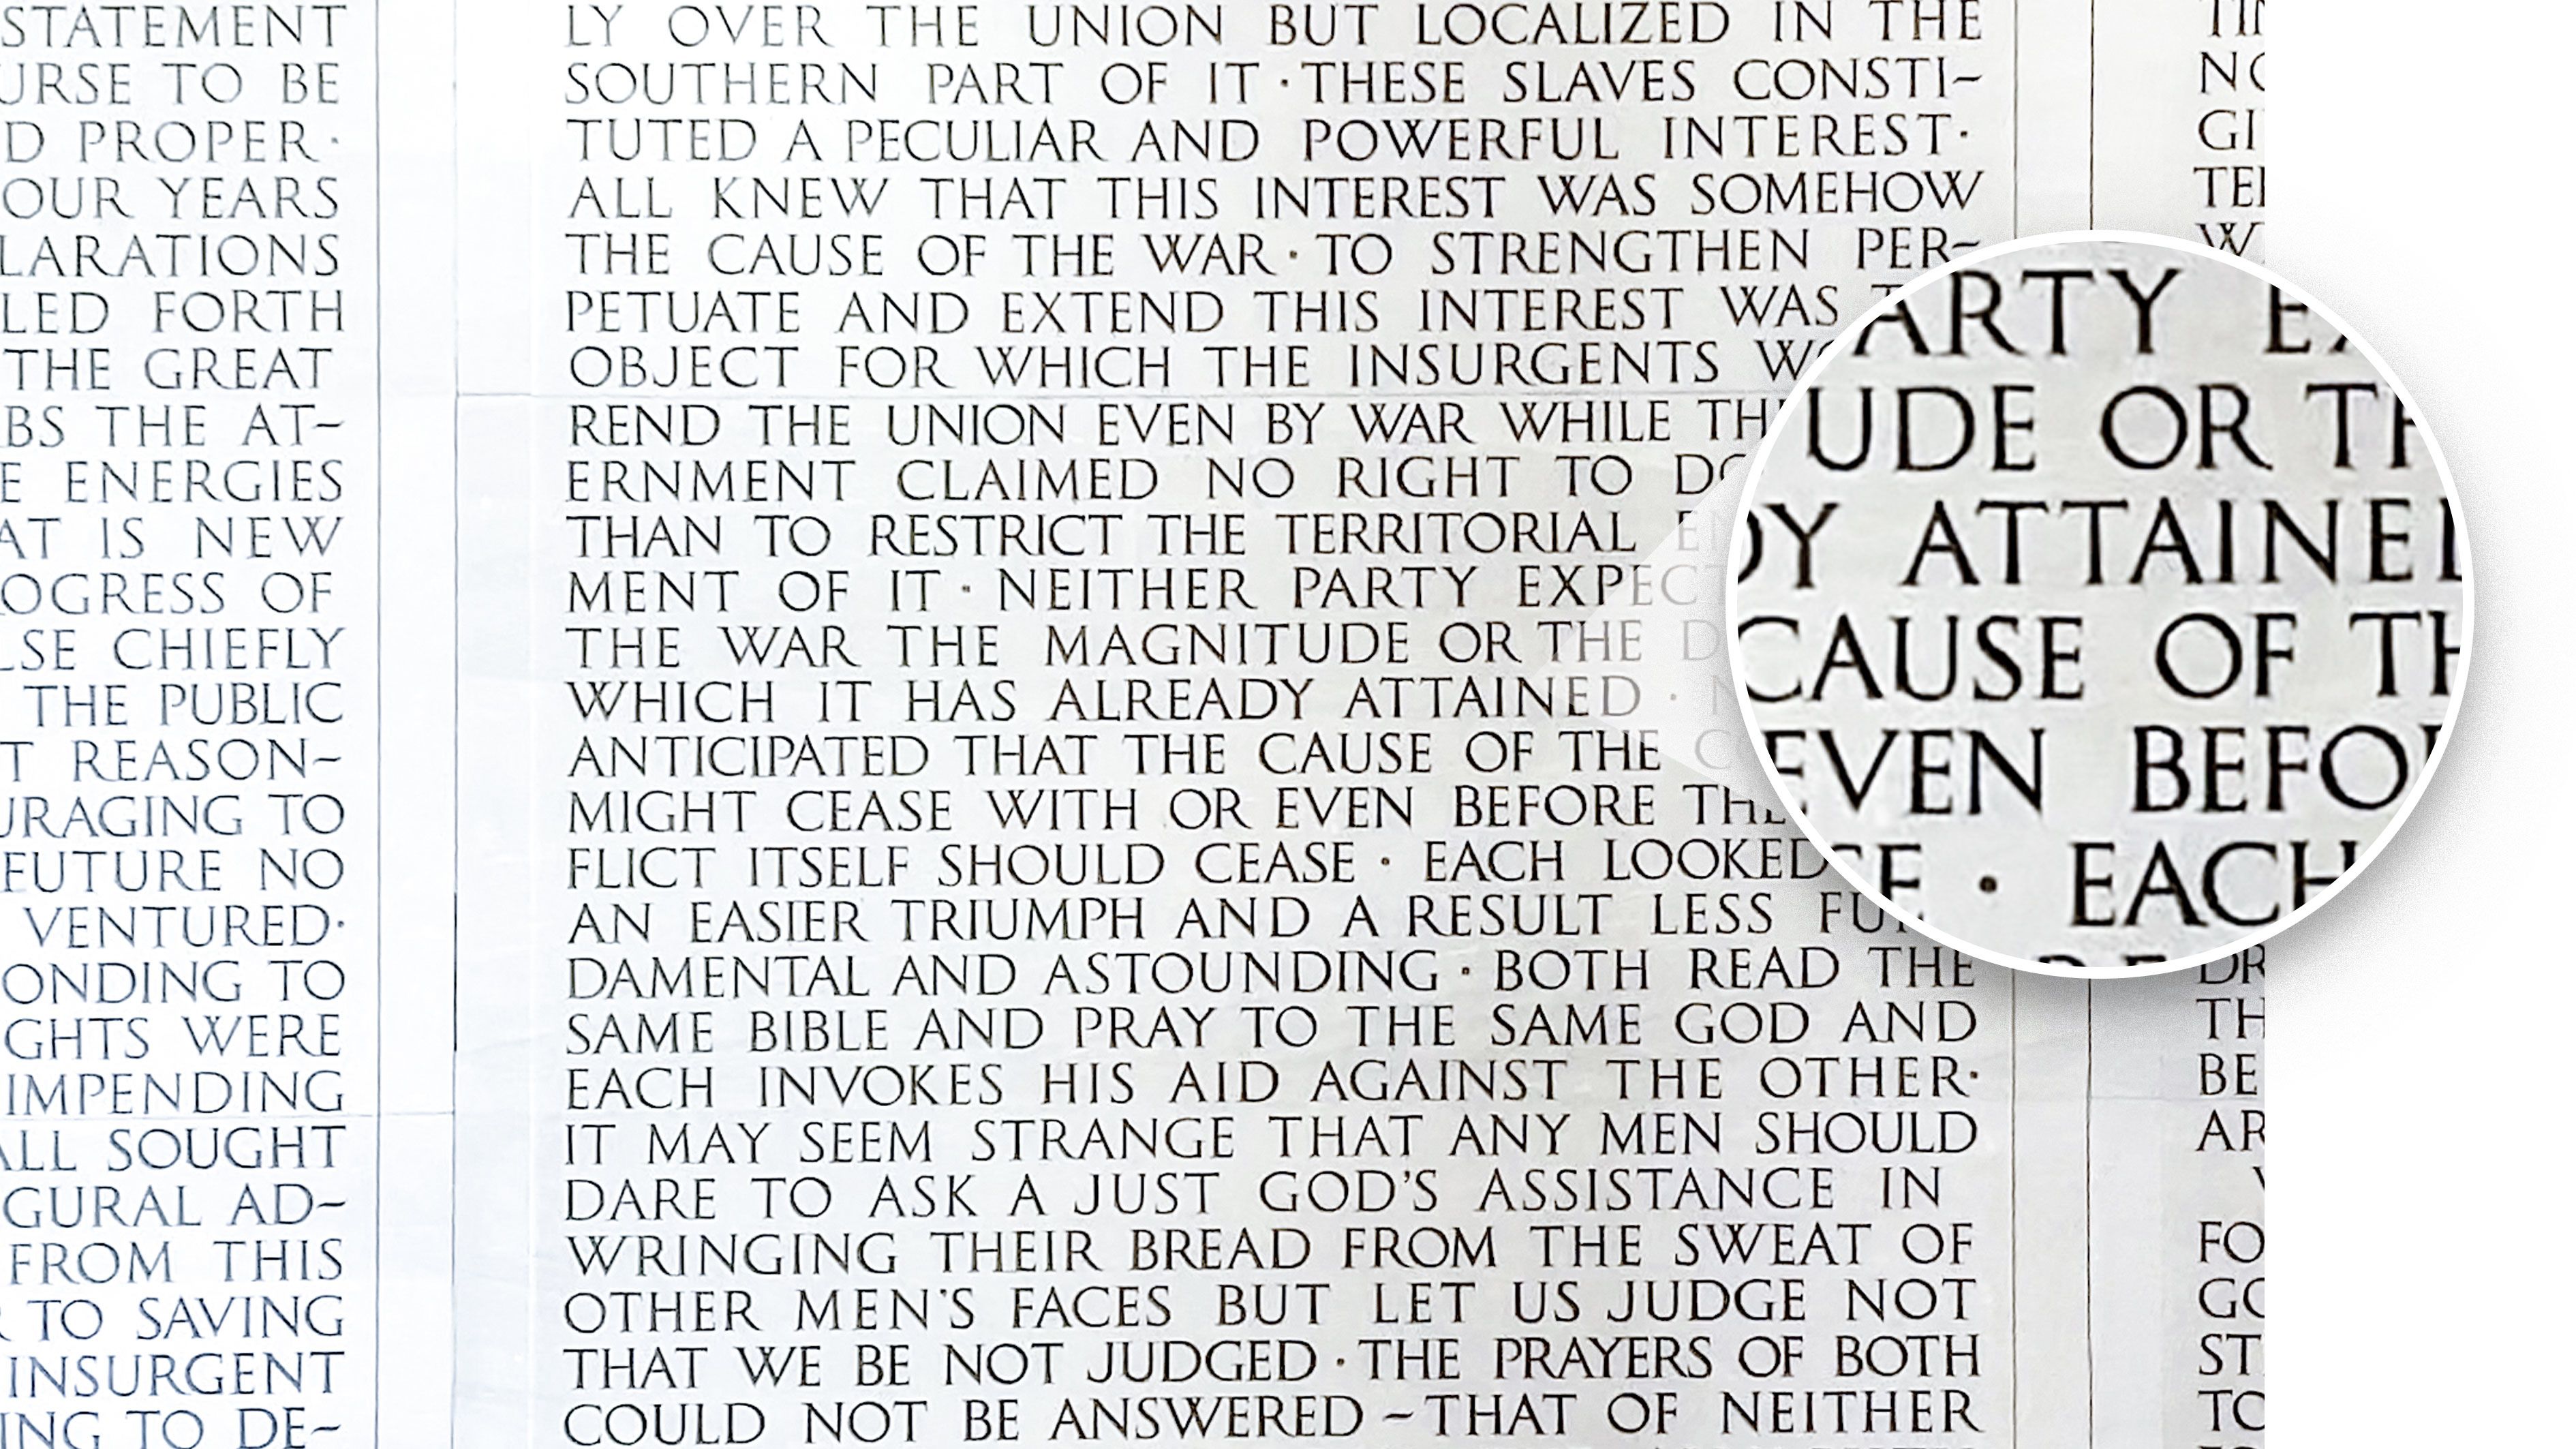 STATEMENT
URSE TO BE
D PROPER·
OUR YEARS
LARATIONS
LED FORTH
THE GREAT
BS THE AT~
E ENERGIES
AT IS NEW
OGRESS OF
LSE CHIEFLY
THE PUBLIC
T REASON~
URAGING TO
FUTURE NO
VENTURED·
ONDING TO
GHTS WERE
IMPENDING
ALL SOUGHT
GURAL AD~
FROM THIS
TO SAVING
INSURGENT
ING TO DE~
LY OVER THE UNION BUT LOCALIZED IN THE
SOUTHERN PART OF IT · THESE SLAVES CONSTI~
TUTED A PECULIAR AND POWERFUL INTEREST·
ALL KNEW THAT THIS INTEREST WAS SOMEHOW
THE CAUSE OF THE WAR · TO STRENGTHEN PER~
PETUATE AND EXTEND THIS INTEREST WAS
OBJECT FOR WHICH THE INSURGENTS
REND THE UNION EVEN BY WAR WHILE TH
ERNMENT CLAIMED NO RIGHT TO DO
THAN TO RESTRICT THE TERRITORIAL EN
MENT OF IT · NEITHER PARTY EXPECT
THE WAR THE MAGNITUDE OR THE D
WHICH IT HAS ALREADY ATTAINED · N
ANTICIPATED THAT THE CAUSE OF THE C
MIGHT CEASE WITH OR EVEN BEFORE THE
FLICT ITSELF SHOULD CEASE · EACH LOOKED
AN EASIER TRIUMPH AND A RESULT LESS FU
DAMENTAL AND ASTOUNDING · BOTH READ THE
SAME BIBLE AND PRAY TO THE SAME GOD AND
EACH INVOKES HIS AID AGAINST THE OTHER·
IT MAY SEEM STRANGE THAT ANY MEN SHOULD
DARE TO ASK A JUST GOD'S ASSISTANCE IN
WRINGING THEIR BREAD FROM THE SWEAT OF
OTHER MEN'S FACES BUT LET US JUDGE NOT
THAT WE BE NOT JUDGED · THE PRAYERS OF BOTH
COULD NOT BE ANSWERED ~ THAT OF NEITHER
ARTY E
UDE OR TH
DY ATTAINE
CAUSE OF TH
EVEN BEFO
E · EACH
TI
NO
GI
TE
W
DR
TH
BE
AR
FO
GO
ST
TO